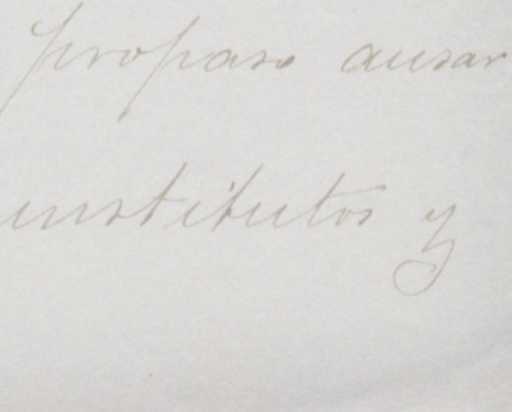 propaso ausar
institutos y